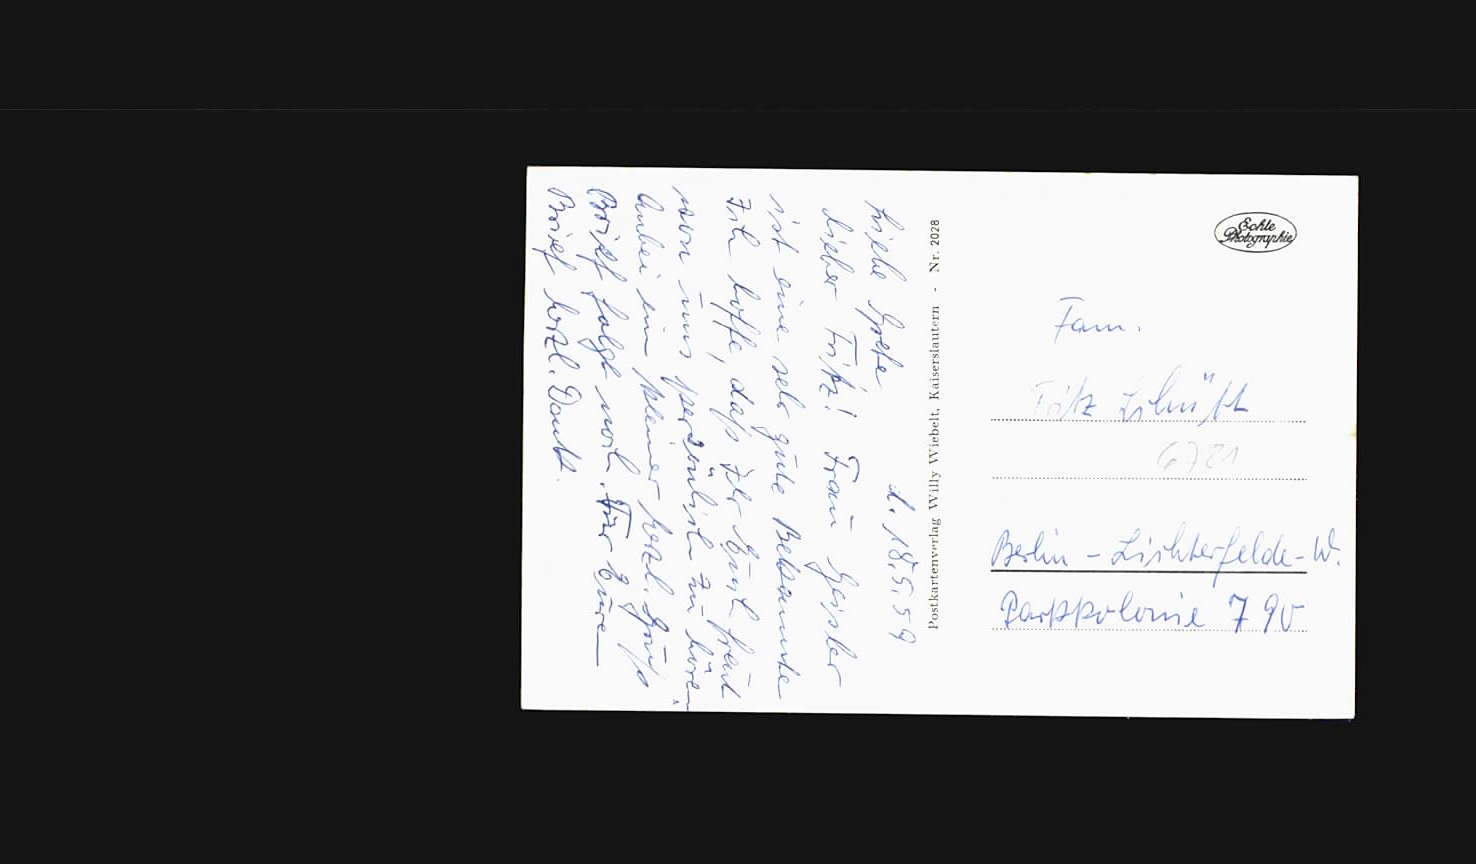 d. 18.5.59
Liebe Grete
lieber Fritz! Frau Geisler
ist eine sehr gute Bekannte
Ich hoffe, daß Ihr Euch freut
von uns persönlich zu hören.
Anbei ein kleiner herzl. Gruß
Brief folgt noch. Für Eure
Brief herzl. Dank.
Postkartenverlag Willy Wiebelt, Kaiserslautern - Nr. 2028
Echte
Photographie
Fam.
Fritz
6721
Berlin - Lichterfelde - W.
Parkkolonie 790